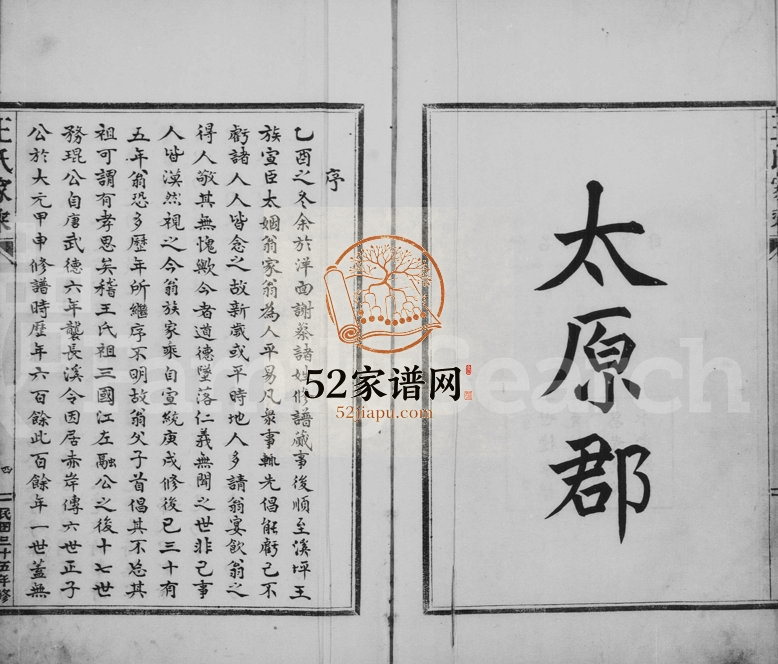 太原郡
序
乙酉之冬余於洋面謝蔡諸姓修譜蕆事後順至溪坪王
族宣臣太姻翁家翁為人平易凡眾事執先倡能虧己不
虧諸人人皆念之故新歲或平時地人多請翁宴飲翁之
得人敬其無愧歟今者道德墜落仁義無聞之世非己事
人皆漠然視之今翁族家乘自宣統庚戌修後已三十有
五年翁恐多歷年所繼序不明故翁父子首倡其不忘其
祖可謂有孝思矣稽王氏祖三國江左融公之後十七世
務琨公自唐武德六年襲長溪令因居赤岸傳六世正子
公於大元甲申修譜時歷年六百餘此百餘年一世蓋無
王氏家乘
四
民國三十五年修
52家谱网
52jiapu.com
Search